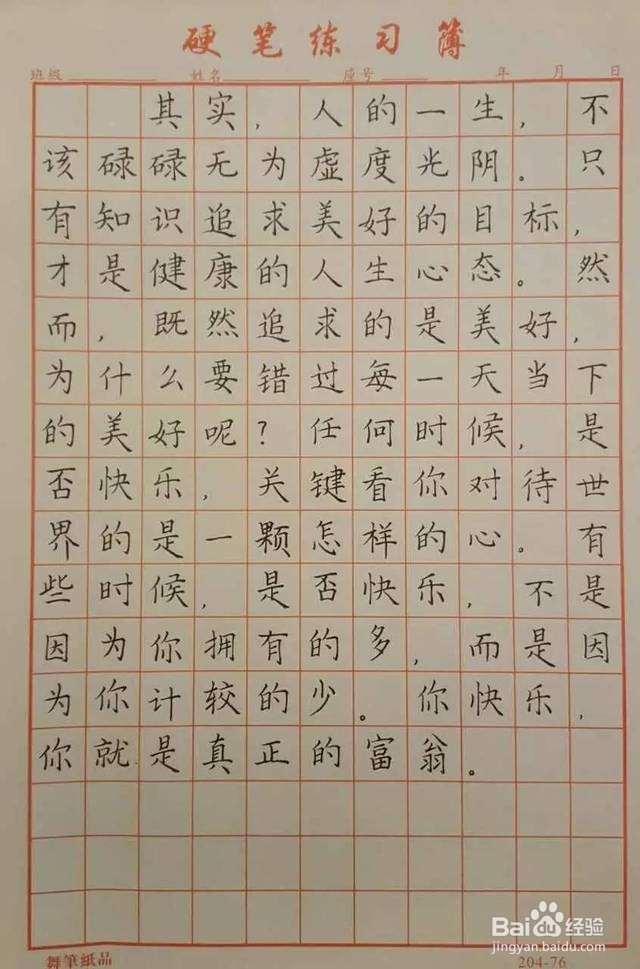 硬笔练习簿
班级 姓名 座号 年 月 日
其实，人的一生，不
该碌碌无为虚度光阴。只
有知识追求美好的目标，
才是健康的人生心态。然
而，既然追求的是美好，
为什么要错过每一天当下
的美好呢？任何时候，是
否快乐，关键看你对待世
界的是一颗怎样的心。有
些时候，是否快乐，不是
因为你拥有的多，而是因
为你计较的少。你快乐，
你就是真正的富翁。
舞筆紙品 204-76
Baidu经验
jingyan.baidu.com